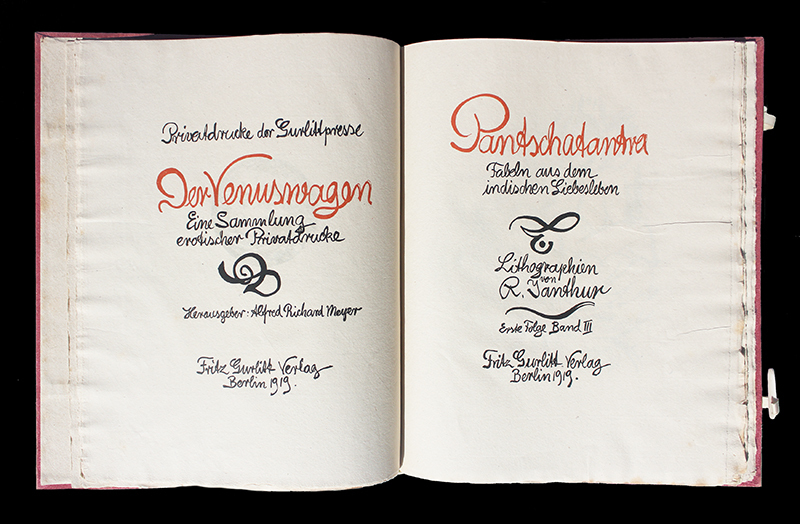 Privatdrucke der Gurlittpresse
Der Venuswagen
Eine Sammlung
erotischer Privatdrucke
Herausgeber: Alfred Richard Meyer
Fritz Gurlitt Verlag
Berlin 1919.
Pantschatantra
Fabeln aus dem
indischen Liebesleben
Lithographien
von
R. Janthur
Erste Folge Band III
Fritz Gurlitt Verlag
Berlin 1919.